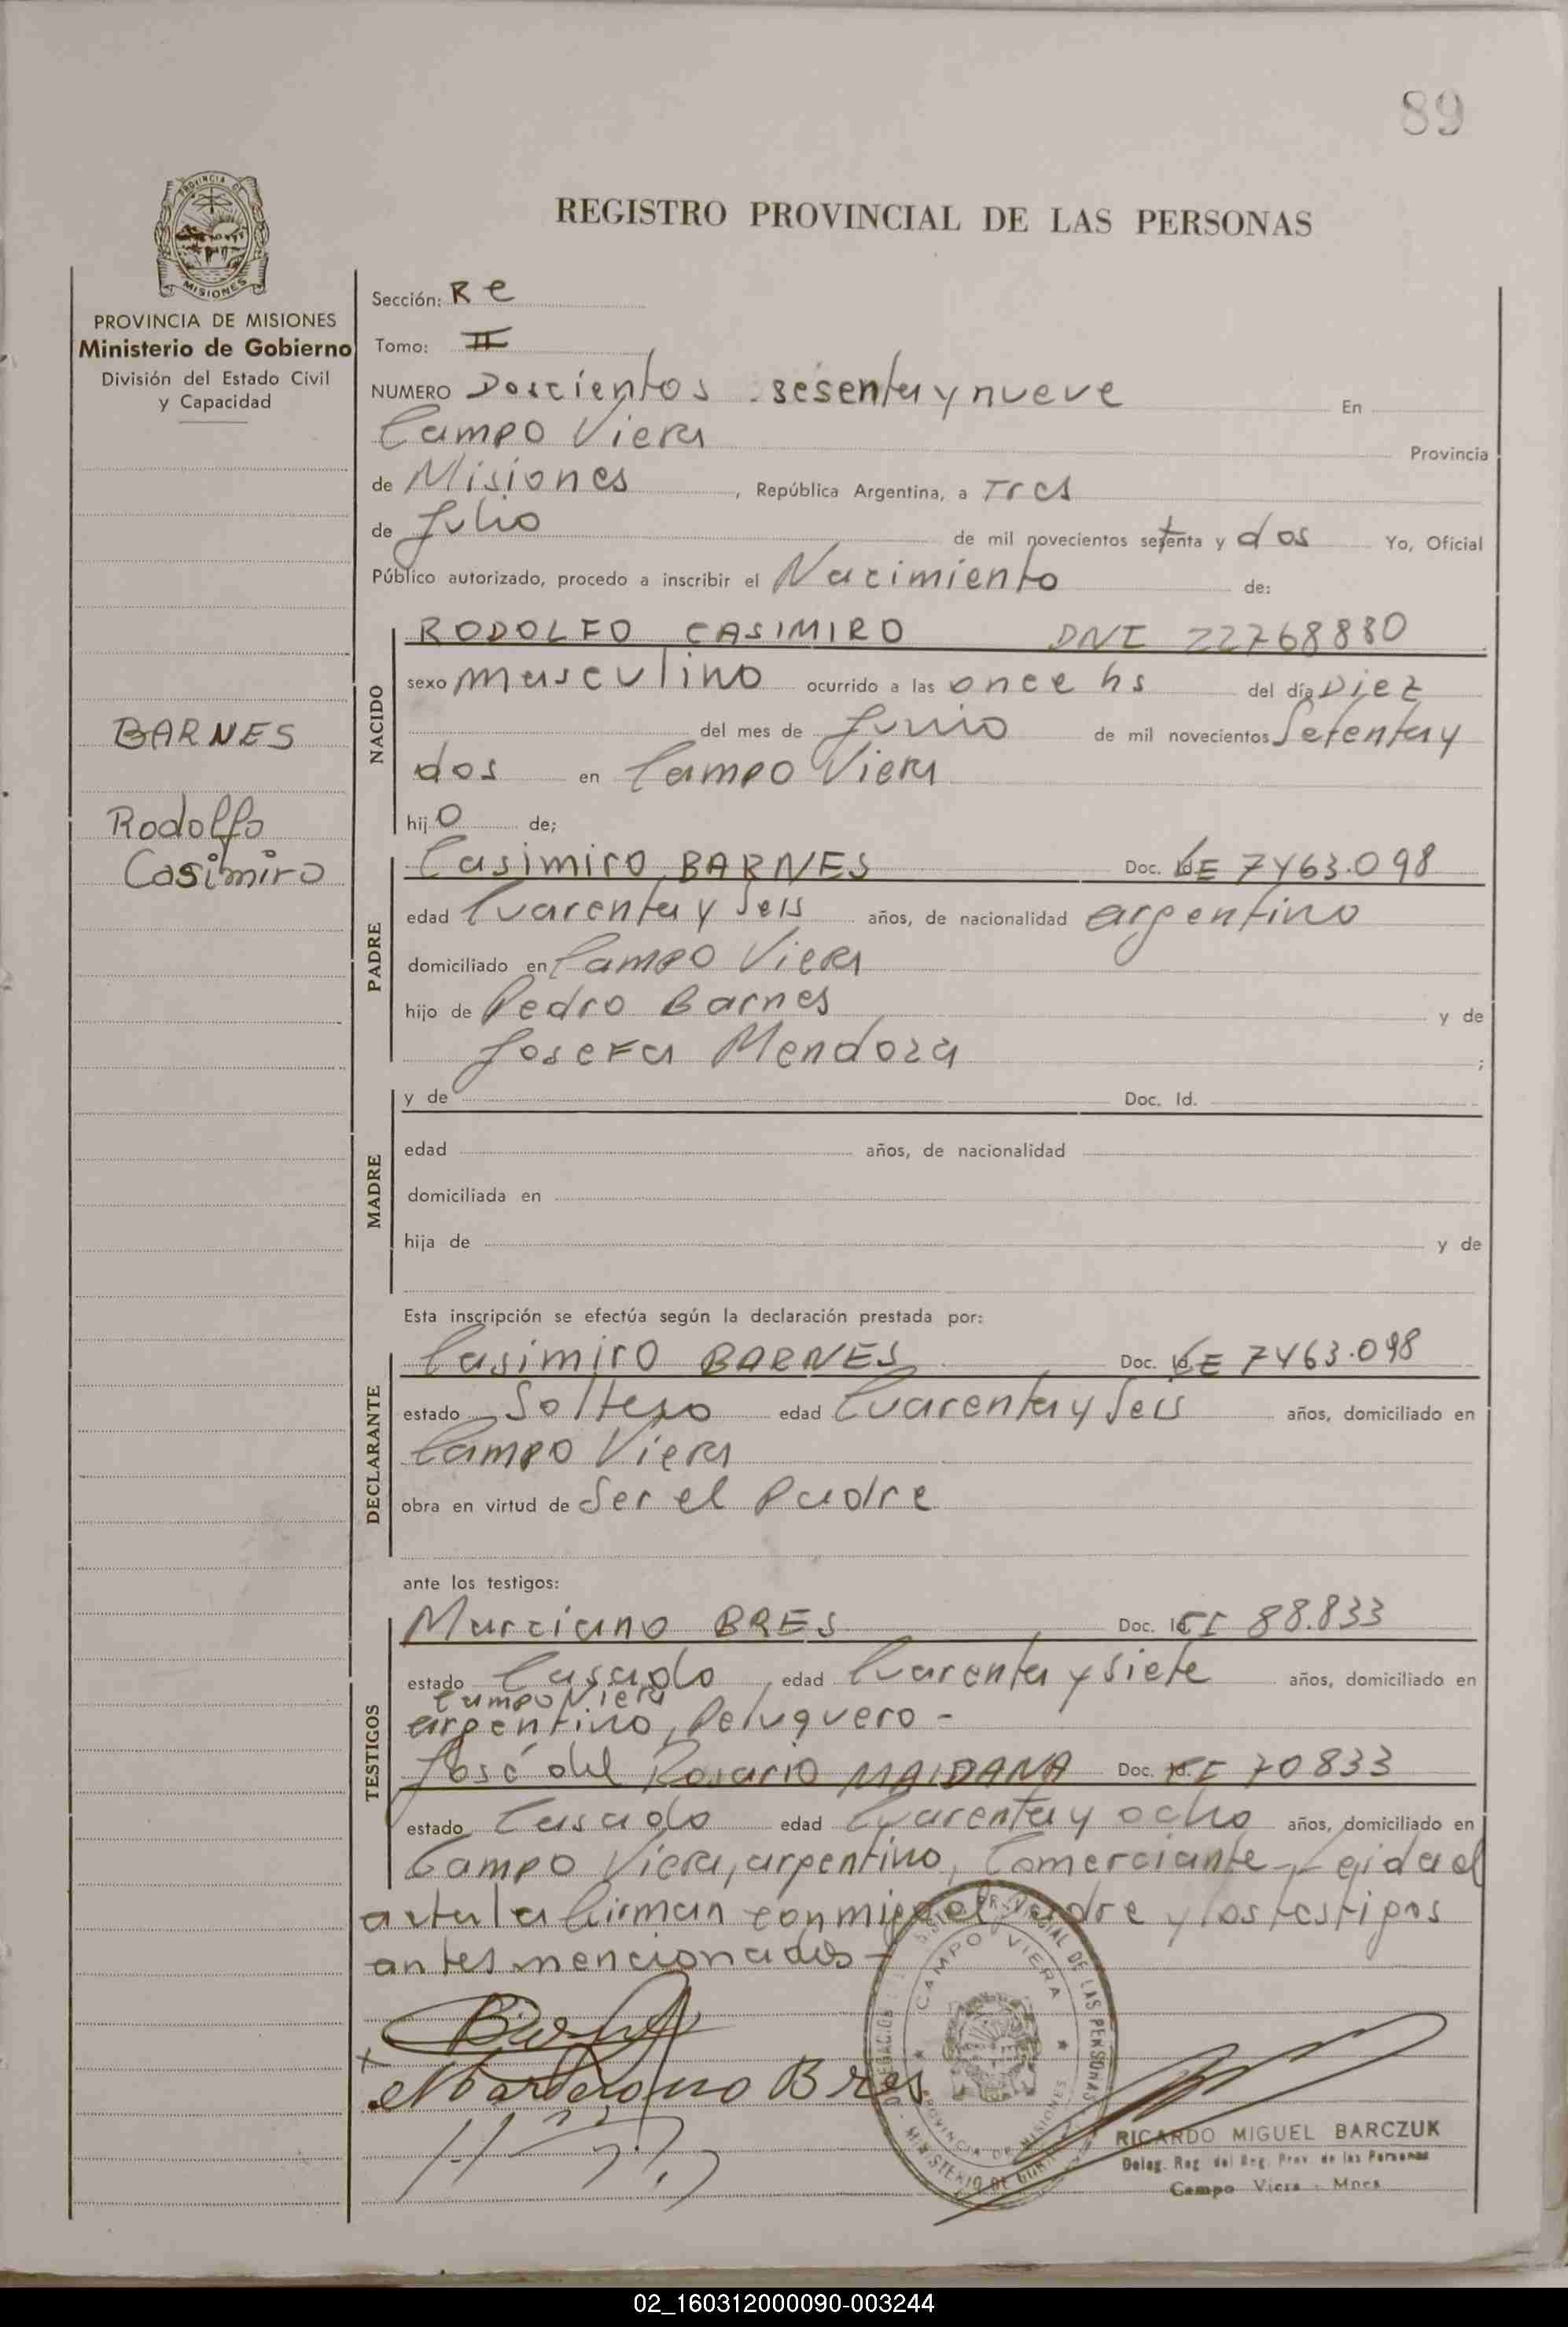 89
REGISTRO PROVINCIAL DE LAS PERSONAS
MISIONES
PROVINCIA DE MISIONES
Ministerio de Gobierno
División del Estado Civil
y Capacidad
BARNES
Rodolfo
Casimiro
Sección: Re
Tomo: II
NUMERO Doscientos sesenta y nueve En
Campo Viera Provincia
de Misiones, República Argentina, a Tres
de Julio de mil novecientos setenta y dos Yo, Oficial
Público autorizado, procedo a inscribir el Nacimiento de:
NACIDO
RODOLFO CASIMIRO DNI 22768880
sexo masculino ocurrido a las once hs del día Diez
del mes de Junio de mil novecientos Setenta y
dos en Campo Viera
hijo de;
PADRE
Casimiro BARNES Doc. LE 7463.098
edad Cuarenta y Seis años, de nacionalidad argentino
domiciliado en Campo Viera
hijo de Pedro Barnes y de
Josefa Mendoza ;
MADRE
y de Doc. Id.
edad años, de nacionalidad
domiciliada en
hija de y de
Esta inscripción se efectúa según la declaración prestada por:
DECLARANTE
Casimiro BARNES Doc. LE 7463.098
estado Soltero edad Cuarenta y Seis años, domiciliado en
Campo Viera
obra en virtud de Ser el Padre
ante los testigos:
TESTIGOS
Marciano BRES Doc. CI 88.833
estado Casado edad Cuarenta y siete años, domiciliado en
Campo Viera
argentino, Peluquero -
José del Rosario MAIDANA Doc. CI 70833
estado Casado edad Cuarenta y ocho años, domiciliado en
Campo Viera, argentino, Comerciante - Leida el
acta la firman conmigo el padre y los testigos
antes mencionados -
Marciano Bres
CAMPO VIERA
PROVINCIA DE MISIONES
RICARDO MIGUEL BARCZUK
Deleg. Reg. del Reg. Prov. de las Personas
Campo Viera - Mnes
02_160312000090-003244